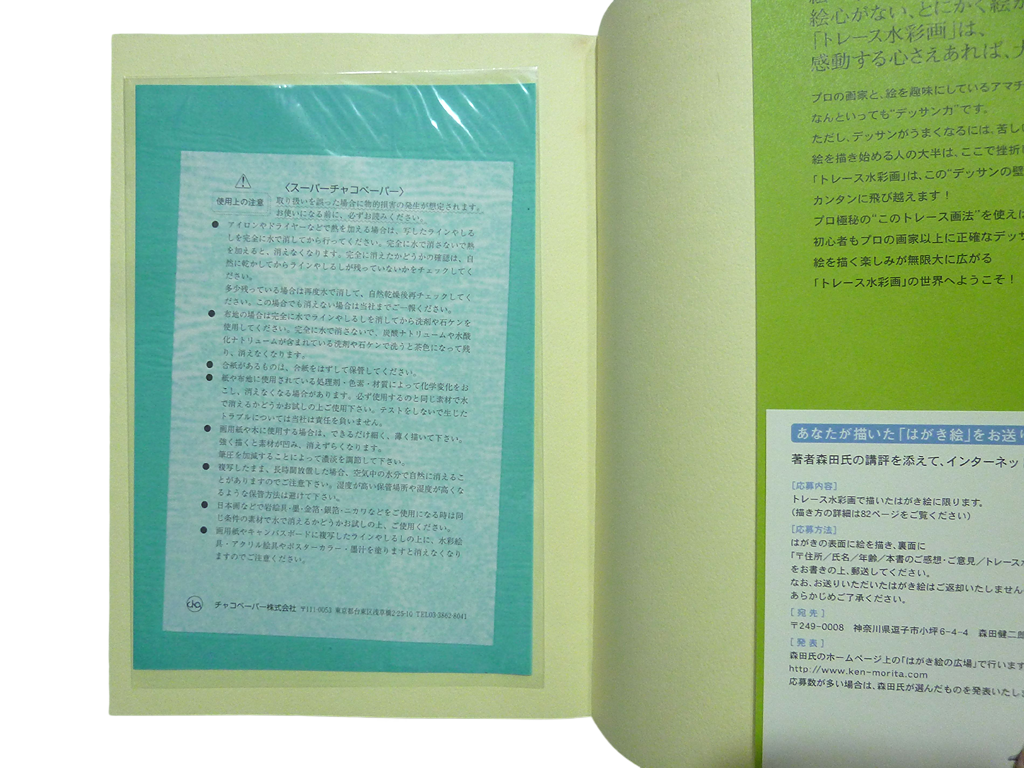 ⚠
使用上の注意
〈スーパーチャコペーパー〉
取り扱いを誤った場合に物的損害の発生が想定されます。
お使いになる前に、必ずお読みください。
● アイロンやドライヤーなどで熱を加える場合は、写したラインやしる
しを完全に水で消してから行ってください。完全に水で消さないで熱
を加えると、消えなくなります。完全に消えたかどうかの確認は、自
然に乾かしてからラインやしるしが残っていないかをチェックしてく
ださい。
多少残っている場合は再度水で消して、自然乾燥後再チェックしてく
ださい。この場合でも消えない場合は当社までご一報ください。
● 布地の場合は完全に水でラインやしるしを消してから洗剤や石ケンを
使用してください。完全に水で消さないで、炭酸ナトリュームや水酸
化ナトリュームが含まれている洗剤や石ケンで洗うと茶色になって残
り、消えなくなります。
● 合紙があるものは、合紙をはずして保管してください。
● 紙や布地に使用されている処理剤・色素・材質によって化学変化をお
こし、消えなくなる場合があります。必ず使用するのと同じ素材で水
で消えるかどうかお試しの上ご使用下さい。テストをしないで生じた
トラブルについては当社は責任を負いません。
● 画用紙や本に使用する場合は、できるだけ細く、薄く描いて下さい。
強く描くと素材が凹み、消えずらくなります。
筆圧を加減することによって濃淡を調節して下さい。
● 複写したまま、長時間放置した場合、空気中の水分で自然に消えるこ
とがありますのでご注意下さい。湿度が高い保管場所や湿度が高くな
るような保管方法は避けて下さい。
● 日本画などで岩絵具・墨・金箔・銀箔・ニカワなどをご使用になる時は同
じ条件の素材で水で消えるかどうかお試しの上、ご使用ください。
● 画用紙やキャンバスボードに複写したラインやしるしの上に、水彩絵
具・アクリル絵具やポスターカラー・墨汁を塗りますと消えなくなり
ますのでご注意ください。
チャコペーパー株式会社 〒111-0053 東京都台東区浅草橋2-25-10 TEL03-3862-8041
絵心がない、とにかく絵が
「トレース水彩画」は、
感動する心さえあれば、
プロの画家と、絵を趣味にしているアマチ
なんといっても“デッサン力”です。
ただし、デッサンがうまくなるには、苦し
絵を描き始める人の大半は、ここで挫折
「トレース水彩画」は、この“デッサンの壁
カンタンに飛び越えます！
プロ極秘の“このトレース画法”を使えば
初心者もプロの画家以上に正確なデッサ
絵を描く楽しみが無限大に広がる
「トレース水彩画」の世界へようこそ！
あなたが描いた「はがき絵」をお送り
著者森田氏の講評を添えて、インターネッ
［応募内容］
トレース水彩画で描いたはがき絵に限ります。
（描き方の詳細は82ページをご覧ください）
［応募方法］
はがきの表面に絵を描き、裏面に
「〒住所／氏名／年齢／本書のご感想・ご意見／トレース
をお書きの上、郵送してください。
なお、お送りいただいたはがき絵はご返却いたしません
あらかじめご了承ください。
［宛先］
〒249-0008 神奈川県逗子市小坪6-4-4 森田健二郎
［発表］
森田氏のホームページ上の「はがき絵の広場」で行います
http://www.ken-morita.com
応募数が多い場合は、森田氏が選んだものを発表いたしま